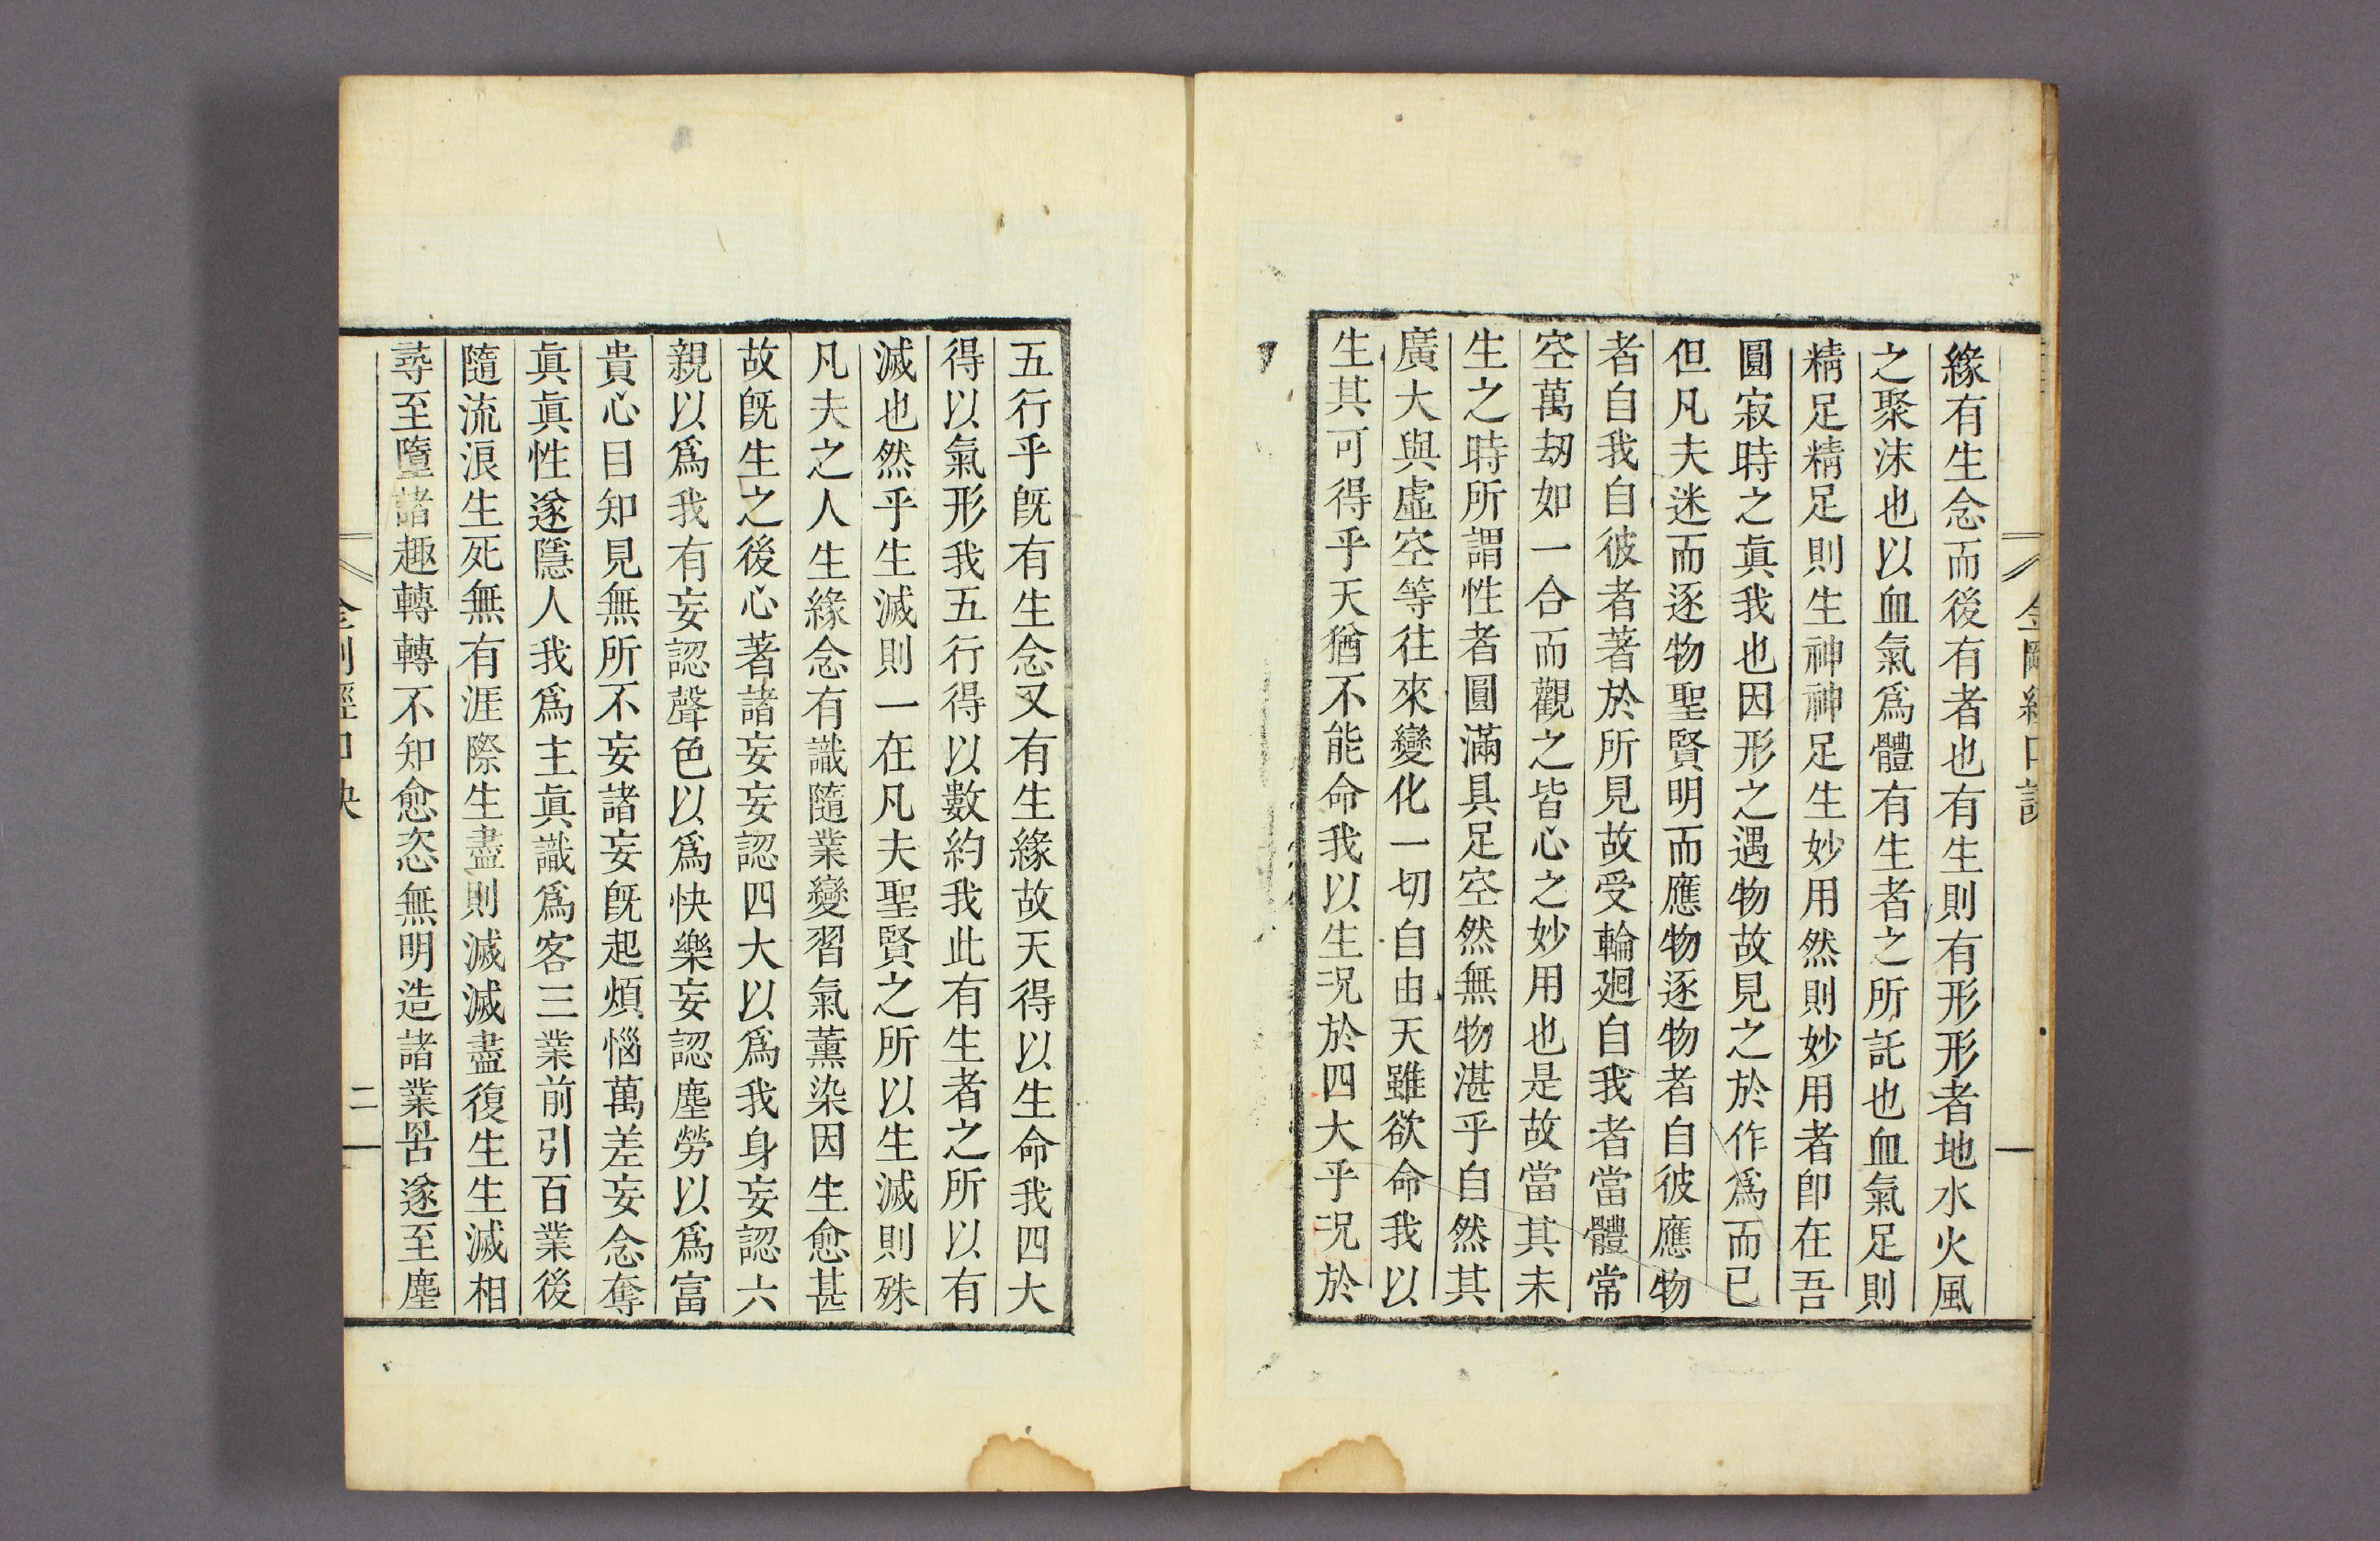 金剛經口訣
一
緣有生念而後有者也有生則有形形者地水火風
之聚沫也以血氣爲體有生者之所託也血氣足則
精足精足則生神神足生妙用然則妙用者卽在吾
圓寂時之眞我也因形之遇物故見之於作爲而已
但凡夫迷而逐物聖賢明而應物逐物者自彼應物
者自我自彼者著於所見故受輪廻自我者當體常
空萬刼如一合而觀之皆心之妙用也是故當其未
生之時所謂性者圓滿具足空然無物湛乎自然其
廣大與虛空等往來變化一切自由天雖欲命我以
生其可得乎天猶不能命我以生况於四大乎况於
五行乎旣有生念又有生緣故天得以生命我四大
得以氣形我五行得以數約我此有生者之所以有
滅也然乎生滅則一在凡夫聖賢之所以生滅則殊
凡夫之人生緣念有識隨業變習氣薰染因生愈甚
故旣生之後心著諸妄妄認四大以爲我身妄認六
親以爲我有妄認聲色以爲快樂妄認塵勞以爲富
貴心目知見無所不妄諸妄旣起煩惱萬差妄念奪
眞眞性遂隱人我爲主眞識爲客三業前引百業後
隨流浪生死無有涯際生盡則滅滅盡復生生滅相
尋至墮諸趣轉轉不知愈恣無明造諸業罟遂至塵
金剛經口訣
二